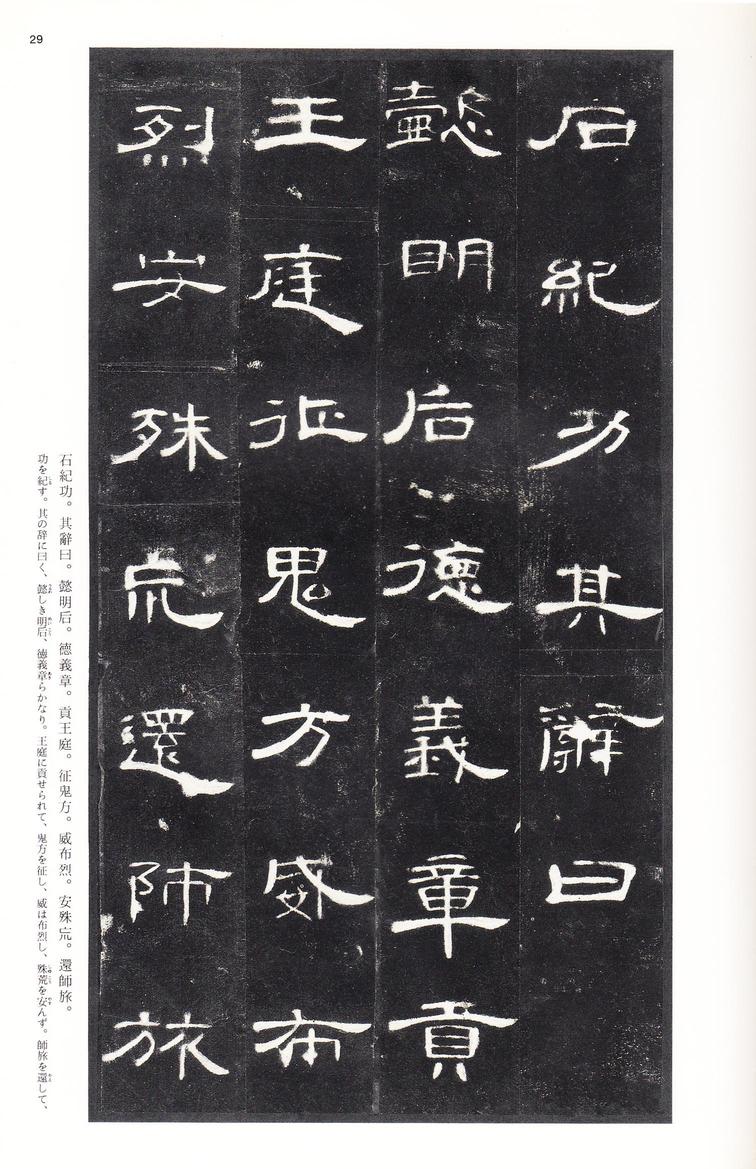 29
石紀功其辭曰
懿明后德義章貢
王庭征鬼方威布
烈安殊巟還師旅
石紀功。其辭曰。懿明后。德義章。貢王庭。征鬼方。威布烈。安殊巟。還師旅。
功を紀す。其の辞に曰く、懿しき明后、徳義章らかなり。王庭に貢せられて、鬼方を征し、威は布烈し、殊荒を安んず。師旅を還して、